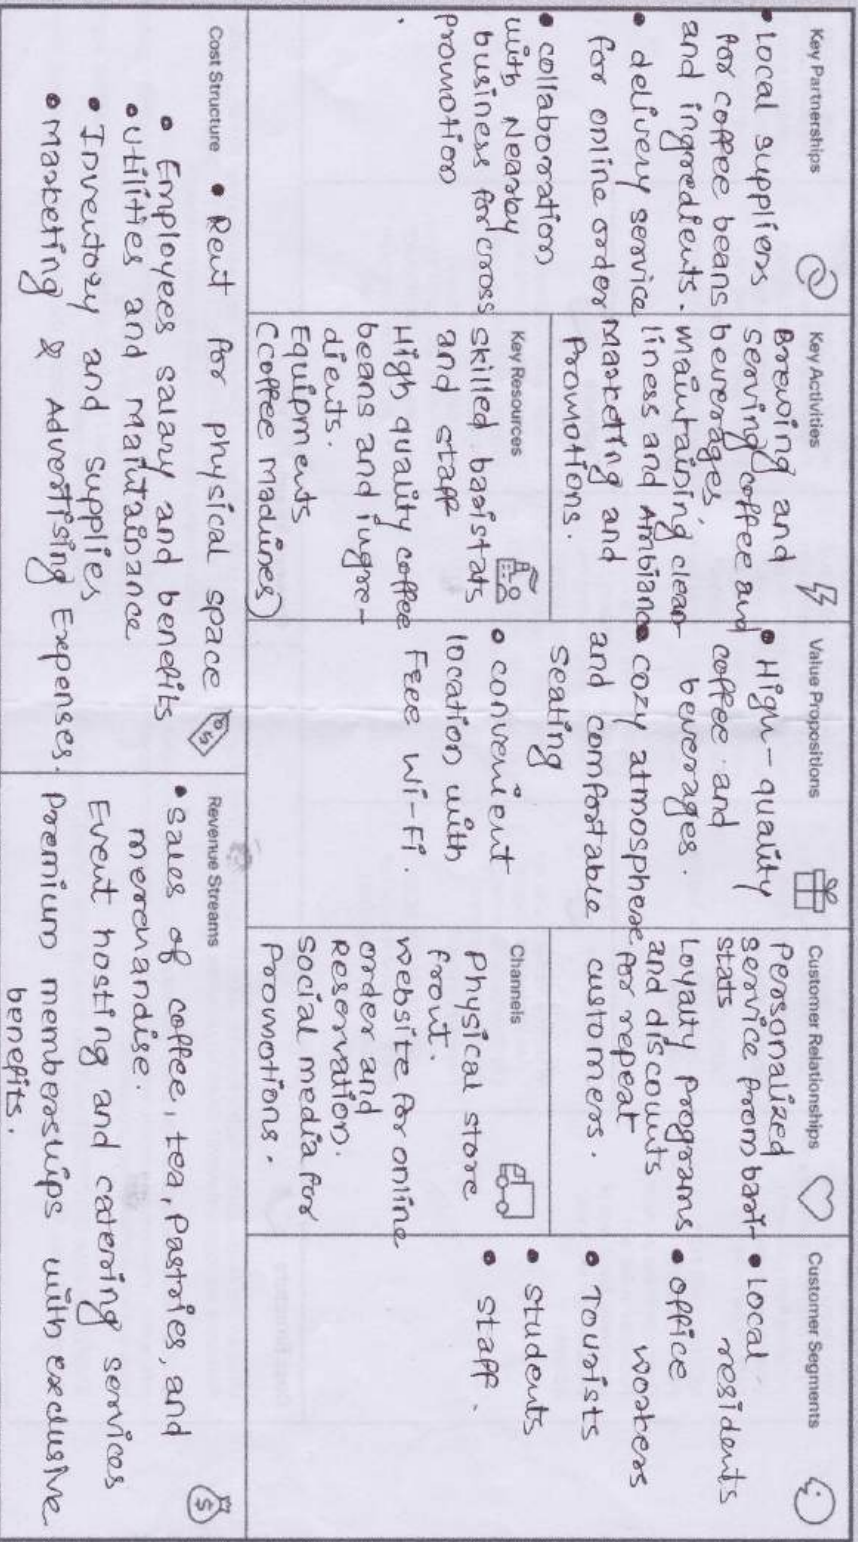 Key Partnerships
• Local suppliers
for coffee beans
and ingredients.
• delivery service
for online order
• collaboration
with Nearby
business for cross
promotion
.
Key Activities
Brewing and
serving coffee and
beverages
maintaining clean-
liness and Ambiance
marketing and
Promotions.
Key Resources
skilled baristats
and staff
High quality coffee
beans and ingre-
dients.
Equipments
(coffee machines)
Value Propositions
• High-quality
coffee and
beverages.
• cozy atmosphere
and comfortable
seating
• convenient
location with
Free Wi-Fi.
Customer Relationships
Personalized
service from bari-
stats
Loyalty programs
and discounts
for repeat
customers.
Channels
Physical store
front.
website for online
order and
Reservation.
Social media for
Promotions.
Customer Segments
• Local
residents
• office
workers
• Tourists
• students
• staff.
Cost Structure
• Rent for physical space
• Employees salary and benefits
• utilities and maintainance
• Inventory and supplies
• marketing & Advertising Expenses.
Revenue Streams
• Sales of coffee, tea, Pastries, and
merchandise.
Event hosting and catering services
Premium memberships with exclusive
benefits.